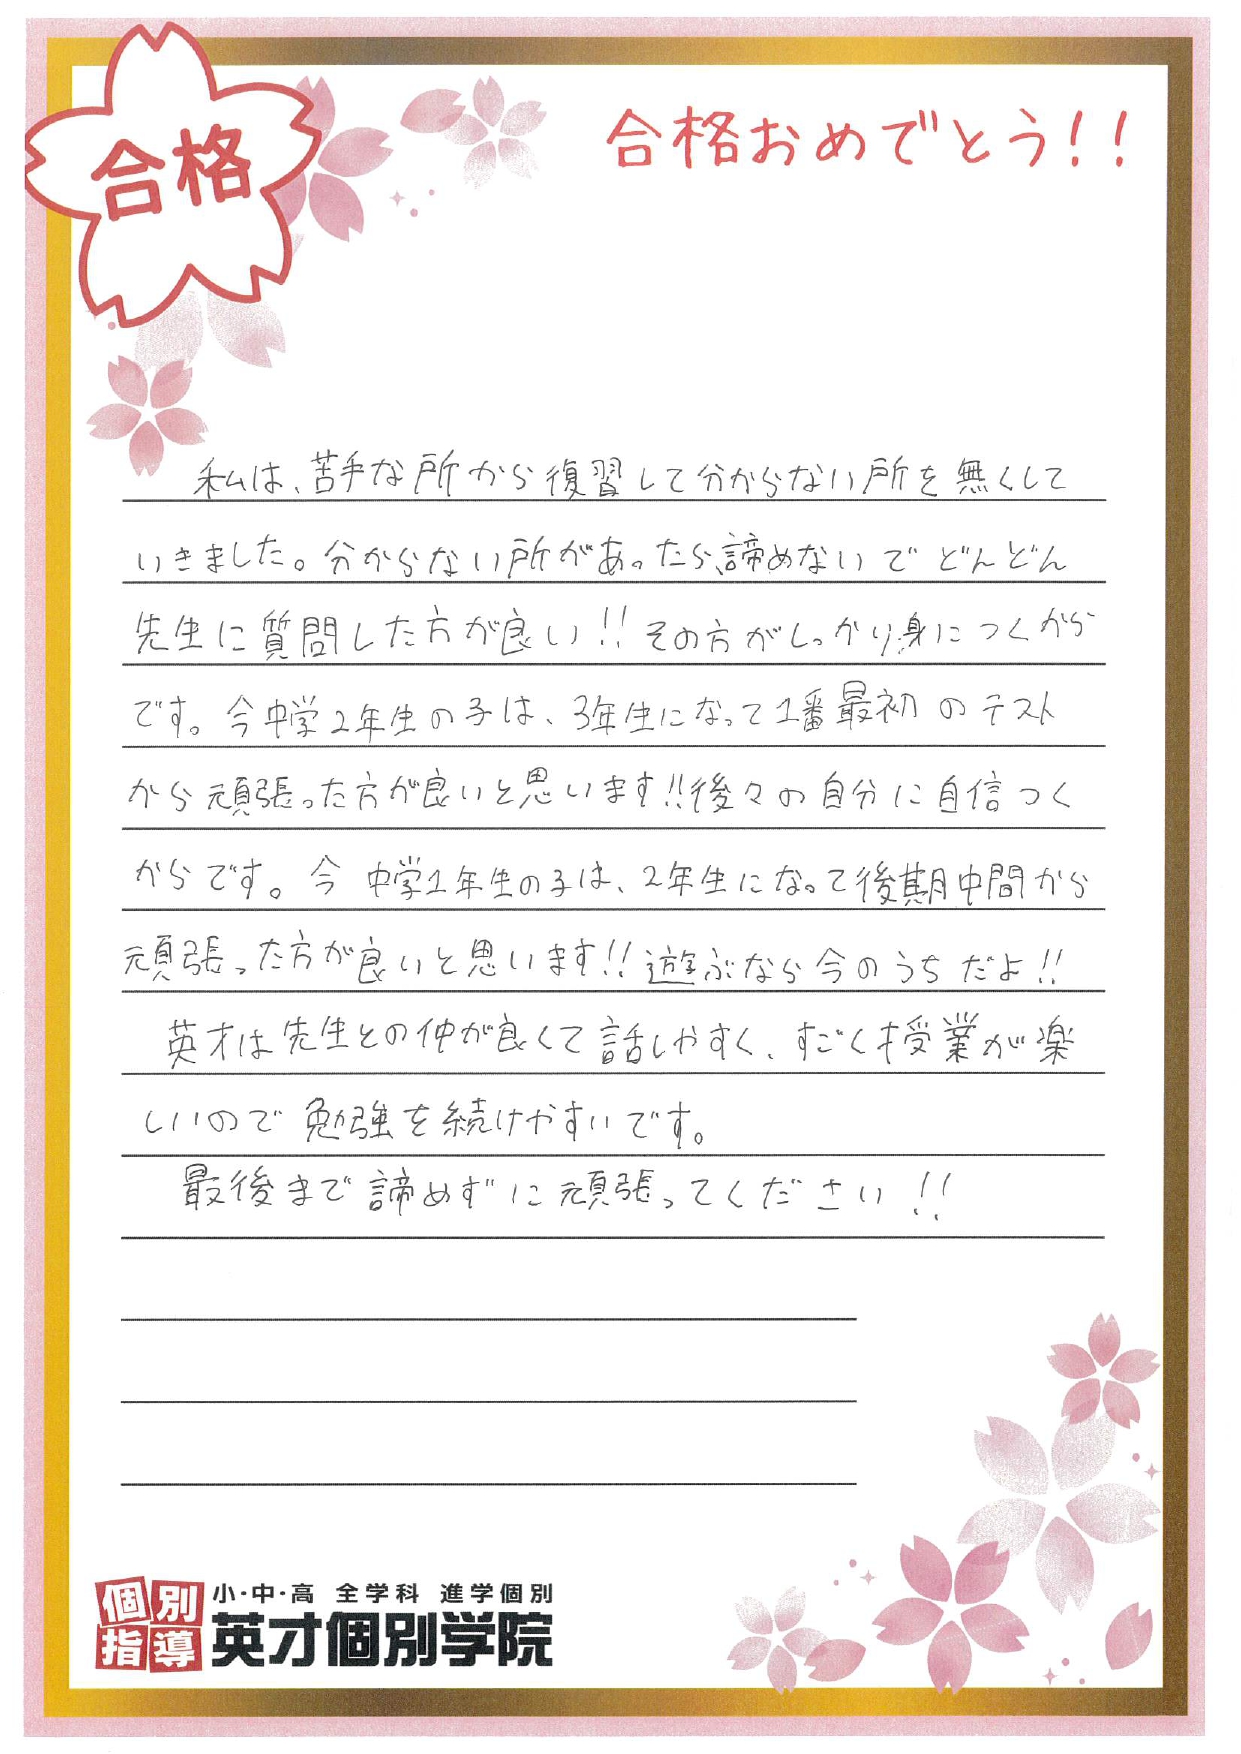 合格
合格おめでとう!!
私は、苦手な所から復習して分からない所を無くして
いきました。分からない所があったら、諦めないでどんどん
先生に質問した方が良い!!その方がしっかり身につくから
です。今中学2年生の子は、3年生になって1番最初のテスト
から頑張った方が良いと思います!!後々の自分に自信つく
からです。今中学1年生の子は、2年生になって後期中間から
頑張った方が良いと思います!!遊ぶなら今のうちだよ!!
英才は先生との仲が良くて話しやすく、すごく授業が楽
しいので勉強を続けやすいです。
最後まで諦めずに頑張ってください!!
個別指導
小・中・高 全学科 進学個別
英才個別学院